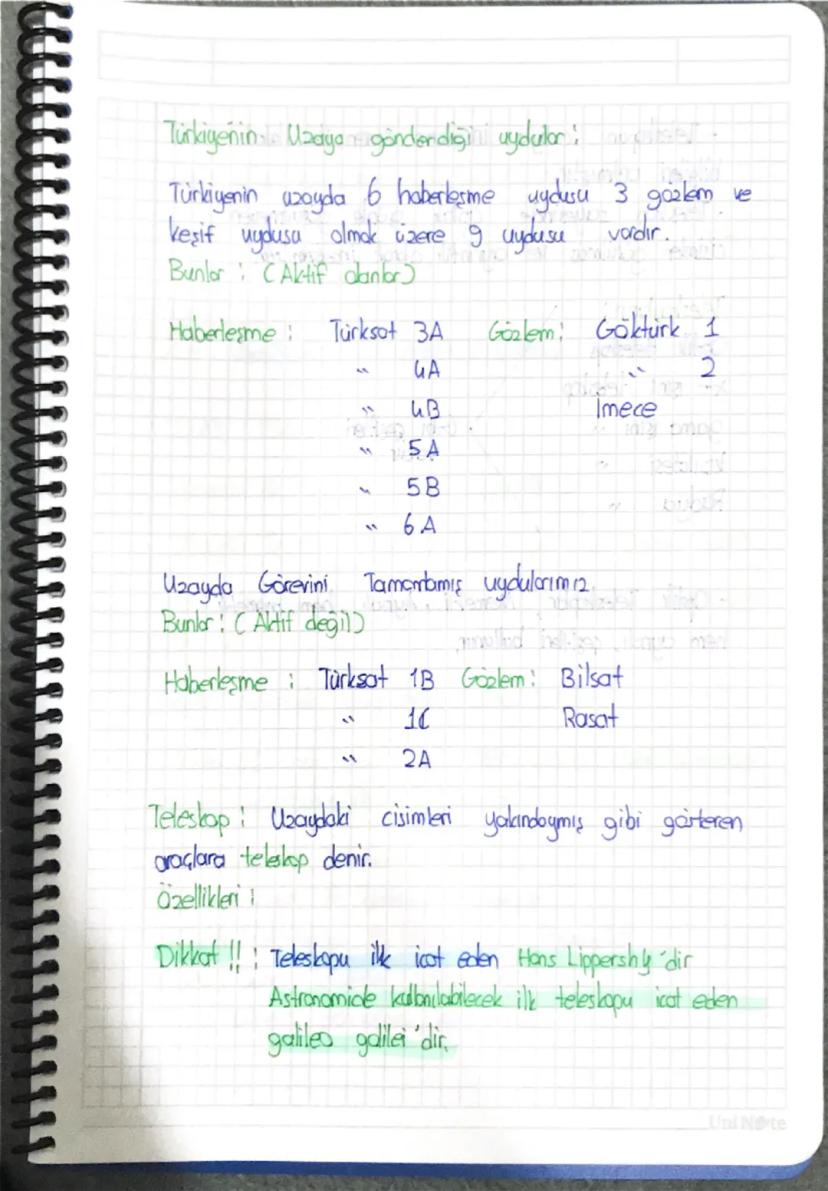 Türkiye'nin Uzaya gönderdiği uydular:
Türkiyenin uzayda 6 haberleşme uydusu 3 gözlem ve
keşif uydusu olmak üzere 9 uydusu vardır.
Bunlar : (Aktif olanlar)
Haberleşme : Türksat 3A Gözlem : Göktürk 1
" 4A " 2
" 4B İmece
" 5A
" 5B
" 6A
Uzayda Görevini Tamamlamış uydularımız
Bunlar : (Aktif değil)
Haberleşme : Türksat 1B Gözlem : Bilsat
" 1C Rasat
" 2A
Teleskop : Uzaydaki cisimleri yakındaymış gibi gösteren
araçlara teleskop denir.
Özellikleri :
Dikkat !! : Teleskopu ilk icat eden Hans Lippershy 'dir
Astronomide kullanılabilecek ilk teleskopu icat eden
galileo galilei 'dir.
Uni Note